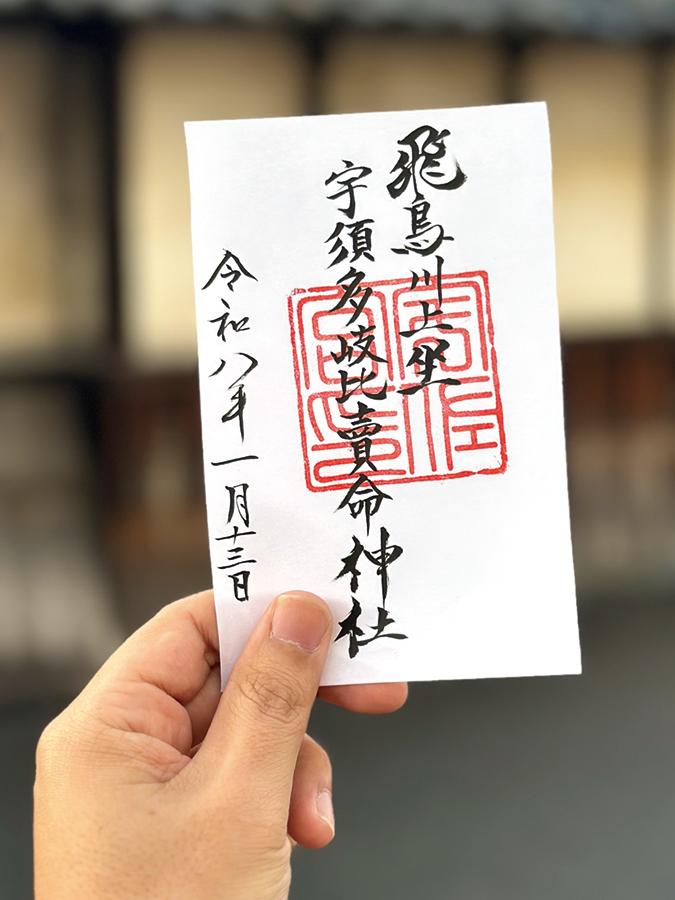 飛鳥川上坐
宇須多岐比賣命神社
令和八年一月十三日